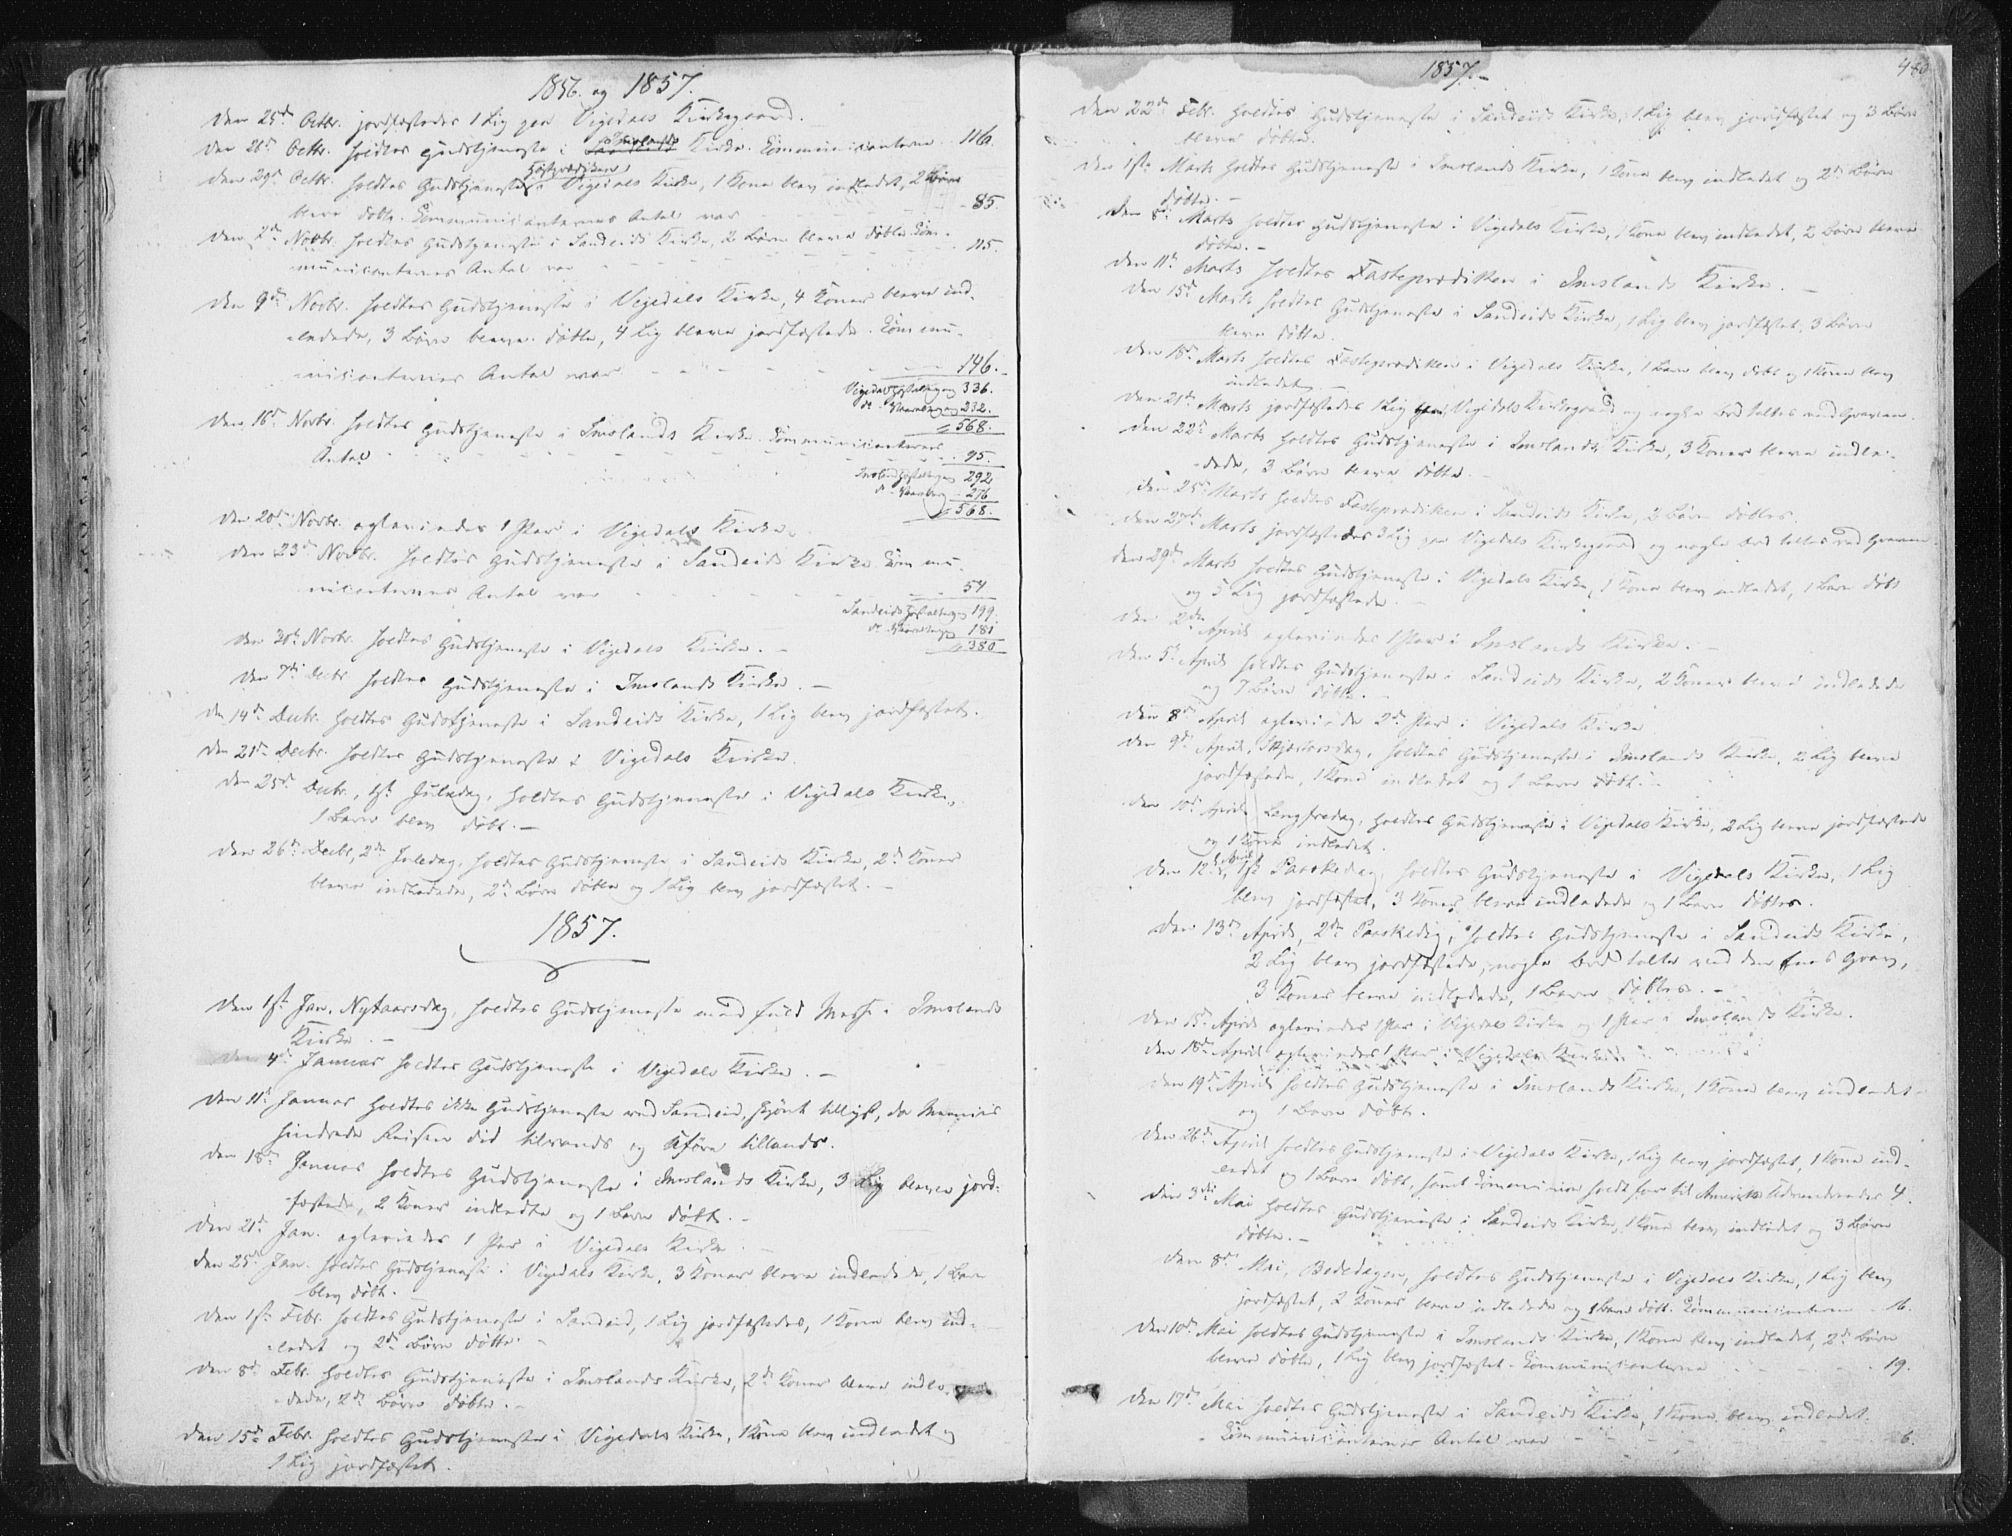 1856. og 1857.
Den 25de Octbr. jordfæstedes 1 Lig paa Vigedals Kirkegaard.
Den 26de Octbr. holdtes Gudstjeneste i Imslands Kirke. Communicanterne 116.
Høstprædiken
Den 29de Octbr. holdtes Gudstjeneste i Vigedals Kirke, 1 Kone blev indledet, 2 Børn
bleve døbte. Communicanternes Antal var - - - 85.
Den 2de Novbr. holdtes Gudstjeneste i Sandeids Kirke, 2 Børn bleve døbte. Com-
municanternes Antal var - - - 115.
Den 9de Novbr. holdtes Gudstjeneste i Vigedals Kirke, 4 Koner bleve ind-
ledede, 3 Børn bleve døbte, 4 Lig bleve jordfæstede. Commu-
nicanternes Antal var - - - 146.
Vigedal Høstaltergang 336.
do Vaaraltergang 232.
568.
Den 16de Novbr. holdtes Gudstjeneste i Imslands Kirke. Communicanternes
Antal - - - 95.
Imsland Høstaltergang 292
do Vaaraltergang 276
568.
Den 20de Novbr. egteviedes 1 Par i Vigedals Kirke.
Den 23de Novbr. holdtes Gudstjeneste i Sandeids Kirke. Commu-
nicanternes Antal var - - - 54
Sandeids Høstaltergang 199.
do Vaaraltergang 181
380
Den 30te Novbr. holdtes Gudstjeneste i Vigedals Kirke. -
Den 7de Decbr. holdtes Gudstjeneste i Imslands Kirke. -
Den 14de Decbr. holdtes Gudstjeneste i Sandeids Kirke, 1 Lig blev jordfæstet.
Den 21de Decbr. holdtes Gudstjeneste i Vigedals Kirke.
Den 25de Decbr., 1ste Juledag, holdtes Gudstjeneste i Vigedals Kirke,
1 Barn blev døbt. -
Den 26de Decbr, 2den Juledag, holdtes Gudstjeneste i Sandeids Kirke, 2de Koner
bleve indledede, 2de Børn døbte og 1 Lig blev jordfæstet. -
1857.
Den 1ste Jan. Nytaarsdag, holdtes Gudstjeneste med fuld Messe i Imslands
Kirke. -
Den 4de Januar holdtes Gudstjeneste i Vigedals Kirke. -
Den 11te Januar holdtes ikke Gudstjeneste ved Sandeid, skjønt tillyst, da
hindrede Reisen did tilvands og Uføre tillands.
Den 18de Januar holdtes Gudstjeneste i Imslands Kirke, 3 Lig bleve jord-
fæstede, 2 Koner indledte og 1 Barn døbt. -
Den 21de Jan. egteviedes 1 Par i Vigedals Kirke. -
Den 25de Jan. holdtes Gudstjeneste i Vigedals Kirke, 3 Koner bleve indledede, 1 Barn
blev døbt.
Den 1ste Febr. holdtes Gudstjeneste i Sandeid, 1 Lig jordfæstedes, 1 Kone blev ind-
ledet og 2de Børn døbte. -
Den 8de Febr. holdtes Gudstjeneste i Imslands Kirke, 2de Koner bleve indle-
dede, 2de Børn døbte. -
Den 15de Febr. holdtes Gudstjeneste i Vigedals Kirke, 1 Kone blev indledet og
1 Lig jordfæstet.
1857. -
480
Den 22de Febr. holdtes Gudstjeneste i Sandeids Kirke, 1 Lig blev jordfæstet og 3 Børn
bleve døbte.
Den 1ste Marts holdtes Gudstjeneste i Imslands Kirke, 1 Kone blev indledet og 2de Børn
døbte. -
Den 8de Marts holdtes Gudstjeneste i Vigedals Kirke, 1 Kone blev indledet, 2 Børn bleve
døbte. -
Den 11te Marts holdtes Fasteprædiken i Imslands Kirke. -
Den 15de Marts holdtes Gudstjeneste i Sandeids Kirke, 1 Lig blev jordfæstet, 3 Børn
bleve døbte.
Den 18de Marts holdtes Fasteprædiken i Vigedals Kirke, 1 Barn blev døbt og 1 Kone blev
indledet. -
Den 21de Marts jordfæstedes 1 Lig paa Vigedals Kirkegaard og nogle Ord taltes ved Graven.
Den 22de Marts holdtes Gudstjeneste i Imslands Kirke, 3 Koner bleve indle-
dede, 3 Børn bleve døbte. -
Den 25de Marts holdtes Fasteprædiken i Sandeids Kirke, 2 Børn døbtes.
Den 27de Marts jordfæstedes 3 Lig paa Vigedals Kirkegaard og nogle Ord taltes ved Graven.
Den 29de Marts holdtes Gudstjeneste i Vigedals Kirke, 1 Kone blev indledet, 1 Barn døbt
og 5 Lig jordfæstede. -
Den 2den April egteviedes 1 Par i Imslands Kirke. -
Den 5te April holdtes Gudstjeneste i Sandeids Kirke, 2 Koner bleve indledede
og 7 Børn døbte. -
Den 8de April egteviede 2de Par i Vigedals Kirke
Den 9de April, Skjærtorsdag, holdtes Gudstjeneste i Imslands Kirke, 2 Lig bleve
jordfæstede, 1 Kone indledet og 1 Barn døbt. -
Den 10de April Langfredag, holdtes Gudstjeneste i Vigedals Kirke, 2 Lig bleve jordfæstede
og 1 Kone indledet.
Den 12te April, 1ste Paaskedag, holdtes Gudstjeneste i Vigedals Kirke, 1 Lig
blev jordfæstet, 3 Koner bleve indledede og 1 Barn døbtes.
Den 13de April, 2den Paaskedag, holdtes Gudstjeneste i Sandeids Kirke,
2 Lig blev jordfæstede, nogle Ord talte ved den enes Grav,
3 Koner bleve indledede, 1 Barn døbtes. -
Den 15de April egteviedes 1 Par i Vigedals Kirke og 1 Par i Imslands Kirke.
Den 18de April egteviedes 1 Par i Vigedals Kirke.
Den 19de April holdtes Gudstjeneste i Imslands Kirke, 1 Kone blev indledet
og 1 Barn døbt.
Den 26de April holdtes Gudstjeneste i Vigedals Kirke, 1 Lig blev jordfæstet, 1 Kone ind-
ledet og 1 Barn døbt, samt Communion holdt for til Amerika Udvandrende 4.
Den 3die Mai holdtes Gudstjeneste i Sandeids Kirke, 1 Kone blev indledet og 3 Børn
døbte. -
Den 8de Mai, Bededagen, holdtes Gudstjeneste i Vigedals Kirke, 1 Lig blev
jordfæstet, 2 Koner bleve indledede og 1 Barn døbt. Communicanterne 16.
Den 10de Mai holdtes Gudstjeneste i Imslands Kirke, 1 Kone blev indledet, 2de Børn
bleve døbte, 1 Lig blev jordfæstet. Communicanterne - - - 19.
Den 17de Mai holdtes Gudstjeneste i Sandeids Kirke, 1 Kone blev indledet.
Communicanternes Antal var - - - 6.